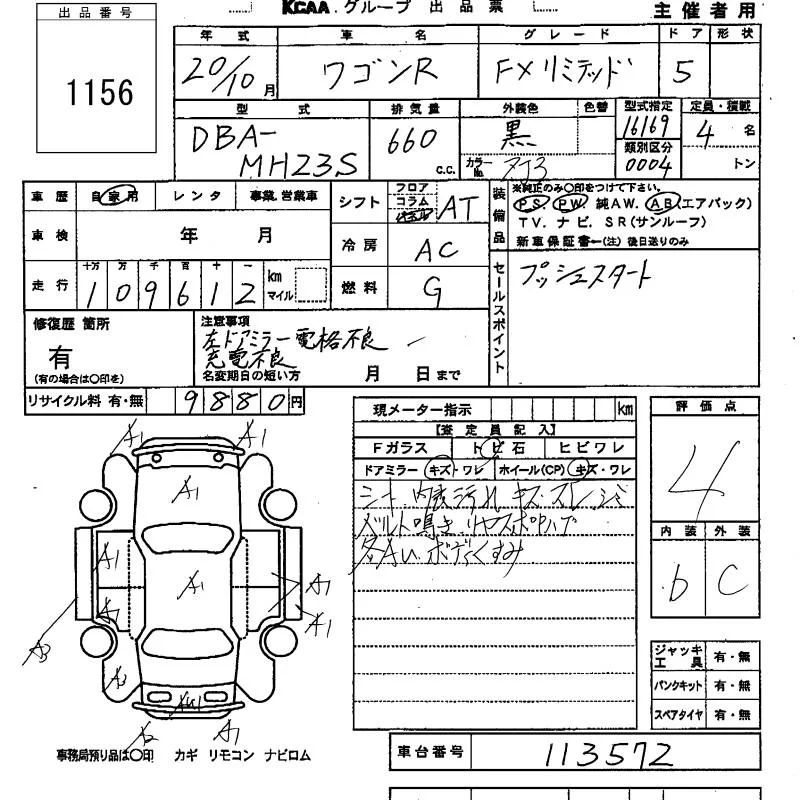 出品番号
1156
KCAA グループ 出品票
主催者用
年式 車名 グレード ドア 形状
20/10月 ワゴンR FXリミテッド 5
型式 排気量 外装色 色替 型式指定 定員・積載
DBA-MH23S 660 C.C. 黒 カラーNo. ZJ3 16169 4名
類別区分
0004 トン
車歴 自家用 レンタ 事業.営業車
シフト フロア コラム AT
装備品 ※純正のみ〇印をつけて下さい。
PS. PW. 純AW. AB(エアバック)
TV. ナビ. SR(サンルーフ)
新車保証書─(注)後日送りのみ
車検 年 月
冷房 AC
走行 十万 万 千 百 十 一
109612 km マイル
燃料 G
セールスポイント プッシュスタート
修復歴 箇所
有
(有の場合は〇印を)
注意事項
左ドアミラー電格不良
充電不良
名変期日の短い方 月 日まで
リサイクル料 有・無 9880円
現メーター指示 km
【査定員記入】
Fガラス トビ石 ヒビワレ
ドアミラー キズ・ワレ ホイール(CP) キズ・ワレ
シート 内装汚れ キズ スレ
ベルト鳴き
ボディくすみ
評価点
4
内装 外装
b C
ジャッキ工具 有・無
パンクキット 有・無
スペアタイヤ 有・無
A1 A1
A1
A1 A1 A1
A1 A1
A3 A3
A2 A1
事務局預り品は〇印 カギ リモコン ナビロム
車台番号 113572